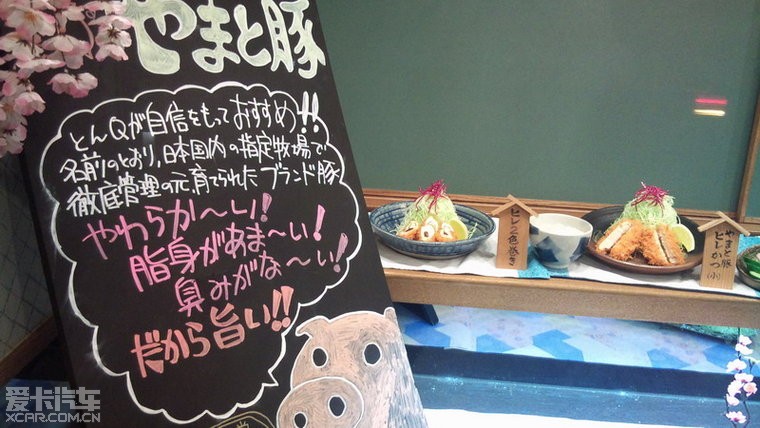 やまと豚
とんQが自信をもっておすすめ!!
名前のとおり,日本国内の指定牧場で
徹底管理の元育てられたブランド豚
やわらか〜い!
脂身があま〜い!
臭みがな〜い!
だから旨い!!
ヒレ2色巻き
やまと豚
ヒレかつ
(小)
爱卡汽车
XCAR.COM.CN